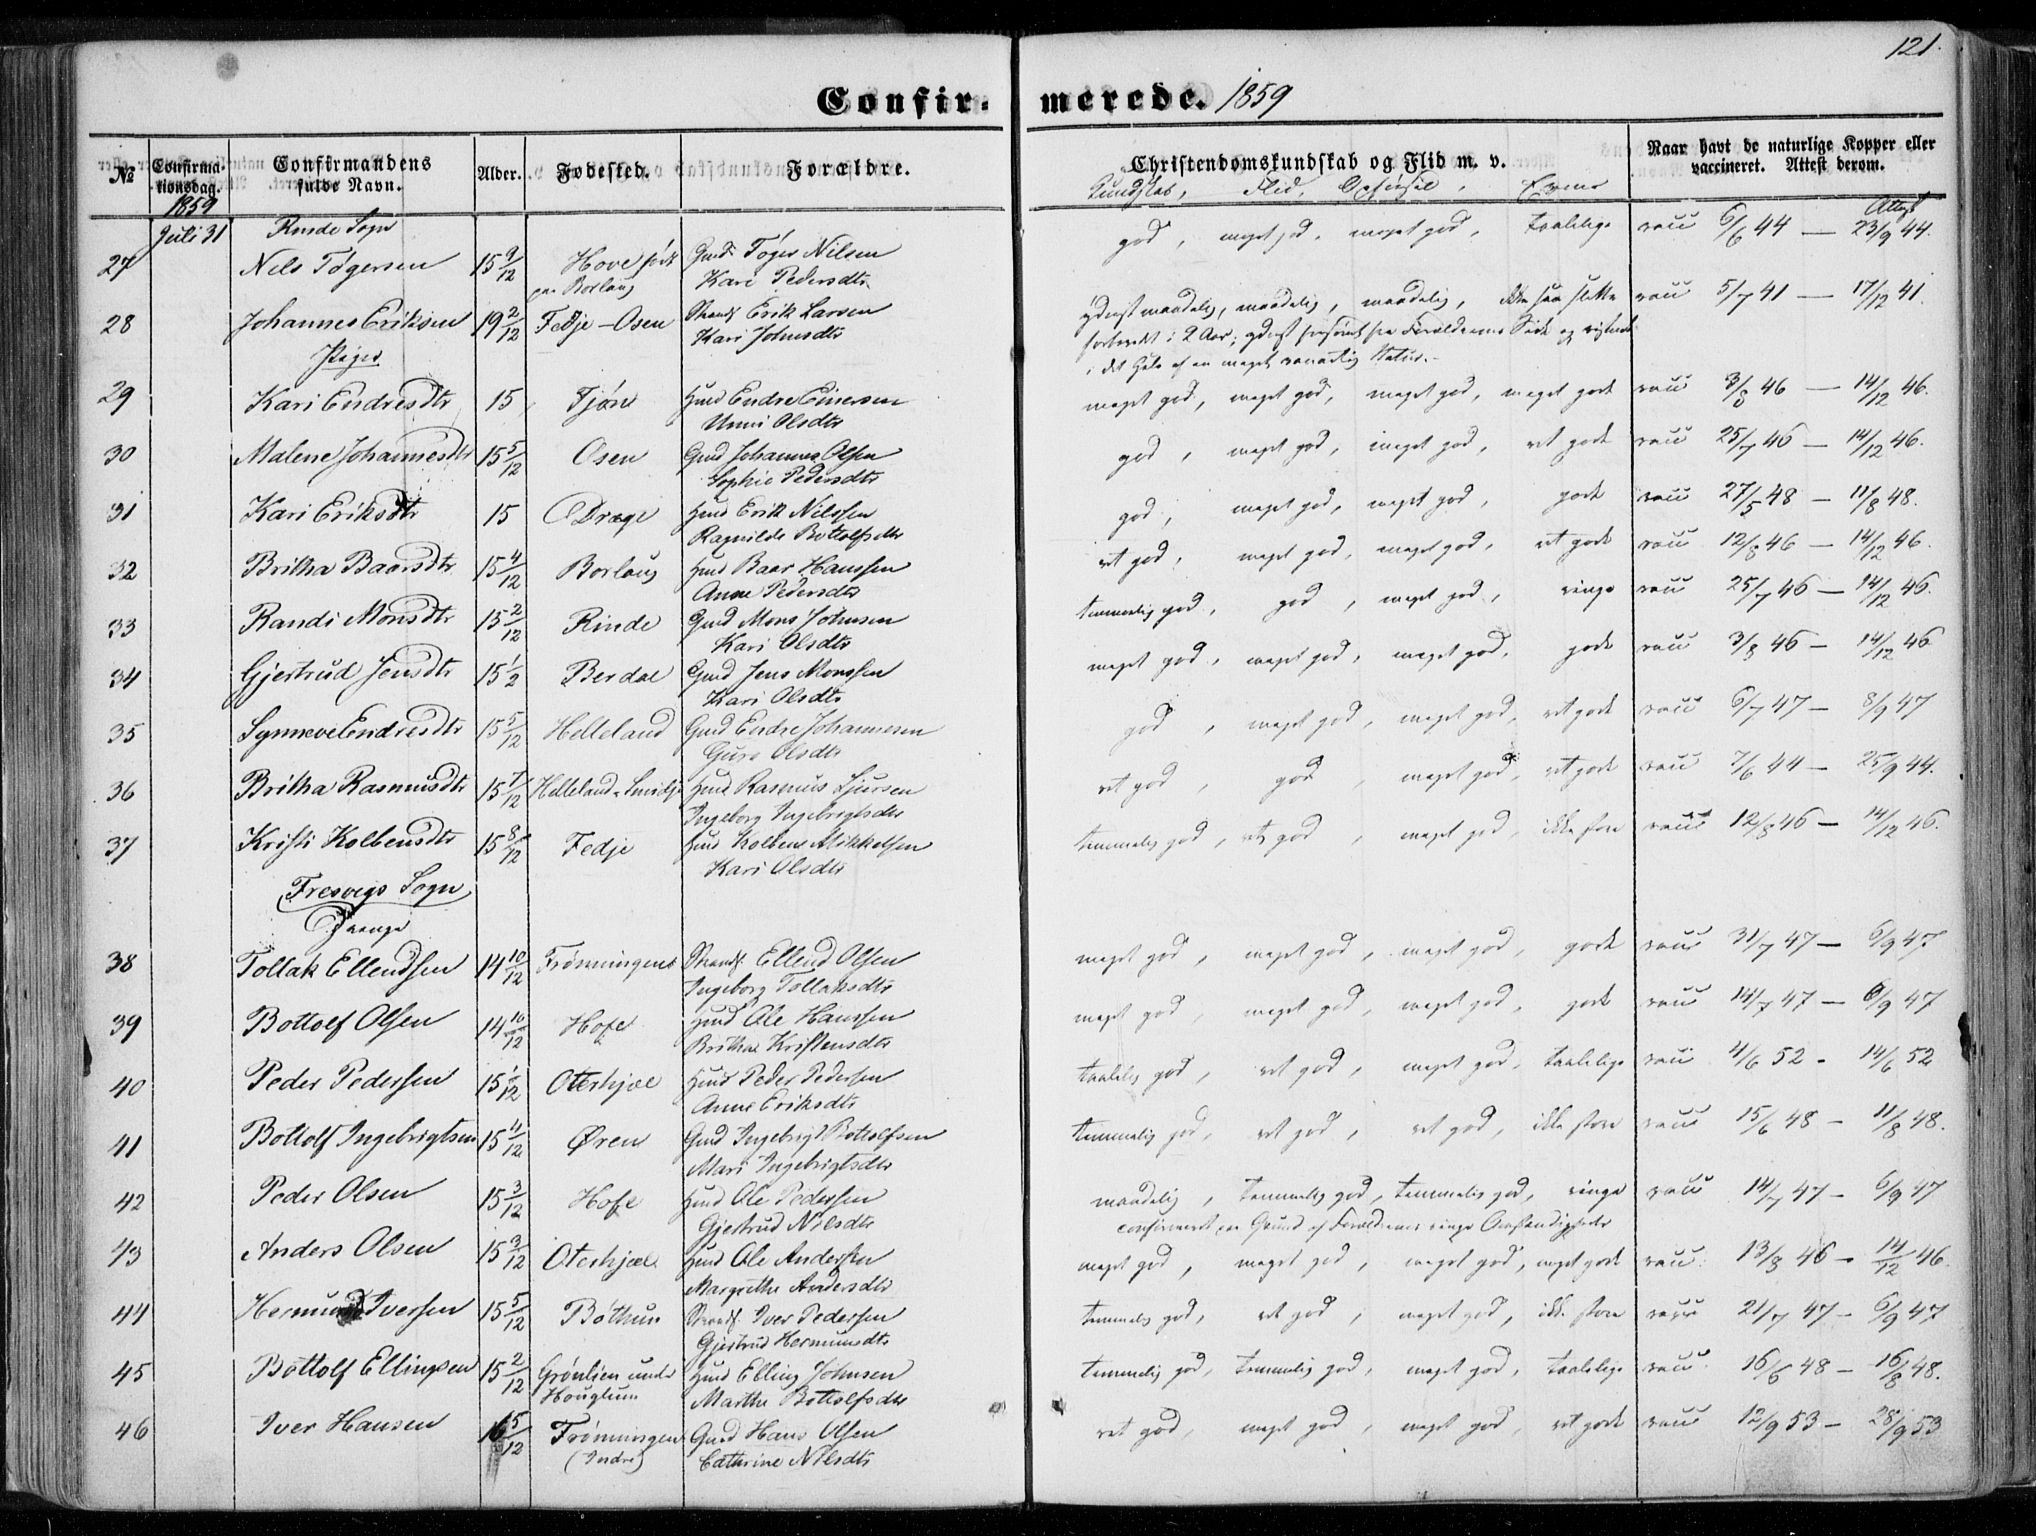 121.
Confir- merede. 1859
№ Confirma- Confirmandens Alder. Fødested. Forældre. Christendomskundskab og Flid m. v. Naar havt de naturlige Kopper eller
tionsdag. fulde Navn. vaccineret. Attest derom.
1859 Kundskab, Flid, Opførsel, Evner Attest
Juli 31 Rinde Sogn
27 Nels Tøgersen 15 9/12 Hove født Gmd Tøger Nilsen god, meget god, meget god, taalelige vacc 6/6 44 — 23/9 44.
paa Borlaug Kari Pedersdtr
28 Johannes Eriksen 19 2/12 Fedje-Osen Strands Erik Larsen yderst maadelig, maadelig, maadelig, ikke saa slette vacc 5/7 41 — 17/12 41.
Kari Johnsdtr i 2 Aar; yderst forsømt fra Forældrenes Side og
Piger i det Hele af en meget vanartig Natur.
29 Kari Endresdtr 15 Tjøne Hmd Endre Einersen meget god, meget god, meget god, meget gode vacc 3/8 46 — 14/12 46.
Unni Olsdtr
30 Malene Johannesdtr 15 5/12 Osen Gmd Johannes Olsen god, meget god, meget god, ret gode vacc 25/7 46 — 14/12 46.
Sophie Pedersdtr
31 Kari Eriksdtr 15 Dræge Hmd Erik Nilssen god, meget god, meget god, gode vacc 27/5 48 — 11/8 48.
Ragnilde Bottolfsdtr
32 Britha Baarsdtr 15 4/12 Borlaug Hmd Baar Hanssen ret god, meget god, meget god, ret gode vacc 12/8 46 — 14/12 46.
Anne Pedersdtr
33 Randi Monsdtr 15 2/12 Rinde Gmd Mons Johnsen temmelig god, god, meget god, ringe vacc 25/7 46 — 14/12 46.
Kari Olsdtr
34 Gjertrud Jensdtr 15 1/2 Berdal Gmd Jens Monssen meget god, meget god, meget god, gode vacc 3/8 46 — 14/12 46
Kari Olsdtr
35 Synneve Endresdtr 15 5/12 Helleland Gmd Endre Johannesen god, meget god, meget god, ret gode vacc 6/7 47 — 8/9 47
Guro Olsdtr
36 Britha Rasmusdtr 15 7/12 Helleland Hmd Rasmus Sjursen ret god, god, meget god, ret gode vacc 7/6 44 — 25/9 44.
Ingeborg Ingebrigtsdtr
37 Kristi Kolbensdtr 15 8/12 Fedje Hmd Kolben Mikkelsen temmelig god, ret god, meget god, ikke store vacc 12/8 46 — 14/12 46.
Kari Olsdtr
Fresvigs Sogn
Drenge
38 Tollak Ellendsen 14 10/12 Frønningens Strands. Ellend Olsen meget god, meget god, meget god, gode vacc 31/7 47 — 6/9 47
Ingeborg Tollaksdtr
39 Bottolf Olsen 14 10/12 Hofe Hmd Ole Hanssen meget god, meget god, meget god, gode vacc 14/7 47 — 6/9 47
Britha Kristensdtr
40 Peder Pedersen 15 1/12 Oterhjæl Hmd Peder Pedersen taalelig god, ret god, meget god, taalelige vacc 4/6 52 - 14/6 52
Anne Eriksdtr
41 Bottolf Ingebrigtsen 15 4/12 Øren Gmd Ingebrigt Bottolfsen temmelig god, ret god, ret god, ikke store vacc 15/6 48 - 11/8 48.
Mari Ingebrigtsdtr
42 Peder Olsen 15 3/12 Hofe Hmd Ole Pedersen maadelig, temmelig god, temmelig god, ringe vacc 14/7 47 - 6/9 47
Gjertrud Nilsdtr confirmeret paa Grund af Forældrenes ringe Omstændigheder
43 Anders Olsen 15 3/12 Oterhjæl Hmd Ole Anderssen meget god, meget god, meget god, meget gode vacc. 13/8 46 - 14/12 46.
Margrethe Andersdtr
44 Hermund Iversen 15 5/12 Bøthun Strands. Iver Pedersen temmelig god, ret god, meget god, ikke store vacc 21/7 47 - 6/9 47
Gjertrud Hermunsdtr
45 Bottolf Ellingsen 15 2/12 Grønlien under Hmd Elling Johnsen temmelig god, temmelig god, meget god, taalelige vacc 16/6 48 - 16/8 48.
Houglum Marthe Bottolfsdtr
46 Iver Hansen 16 5/12 Frønningen Gmd Hans Olsen ret god, meget god, meget god, ret gode vacc 12/9 53 - 28/9 53
(Indre) Cathrine Nilsdtr